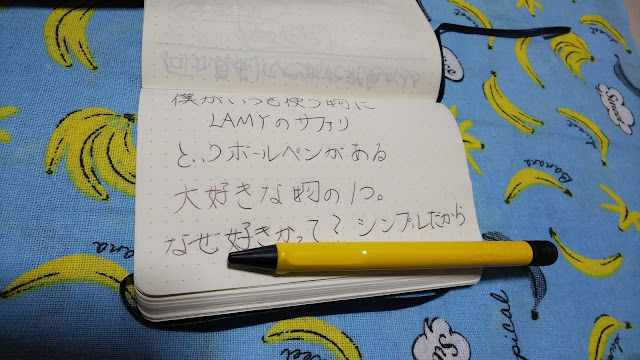 僕がいつも使う物に
LAMYのサファリ
というボールペンがある
大好きな物の1つ。
なぜ好きかって？シンプルだから
Banana